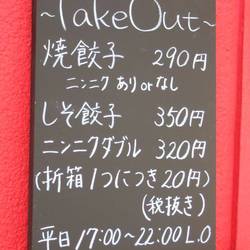 ~TakeOut~
焼餃子 290円
ニンニク ありorなし
しそ餃子 350円
ニンニクダブル 320円
(折箱1つにつき20円)
(税抜き)
平日17:00~22:00L.O